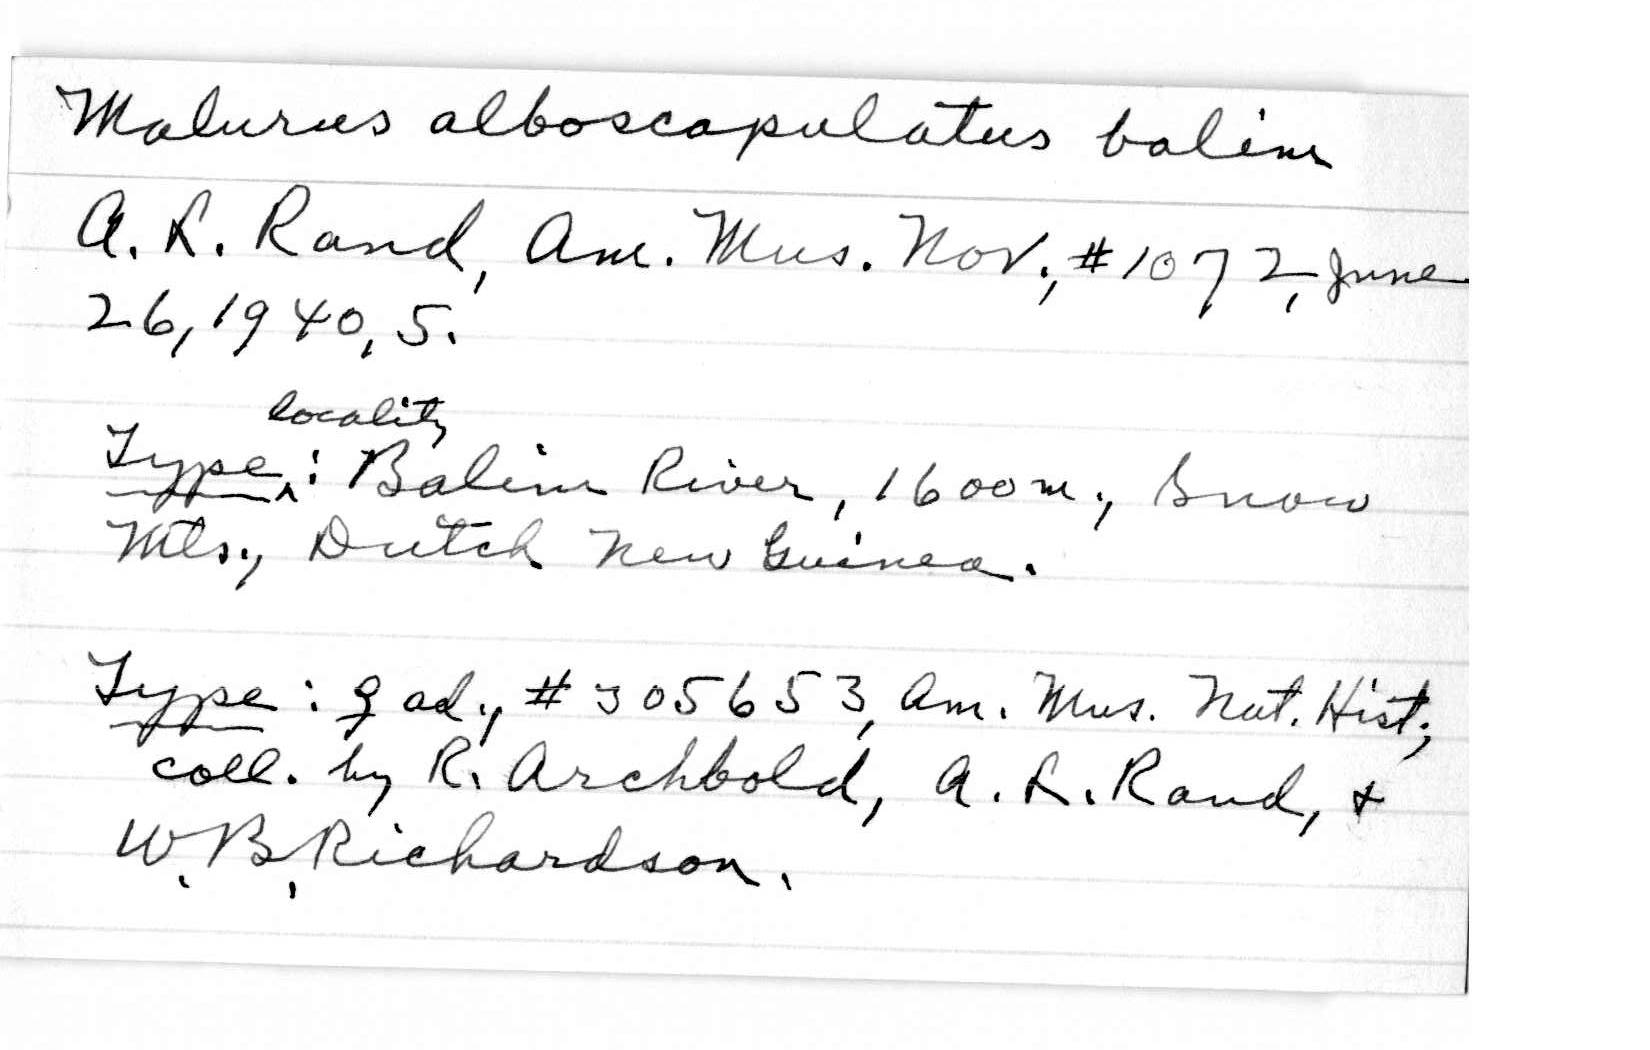 Malurus alboscapulatus balim
A. L. Rand, Am. Mus. Nov., #1072, June
26, 1940, 5.
locality
Type: Balim River, 1600 m., Snow
Mts., Dutch New Guinea.
Type: ♀ ad., #305653, Am. Mus. Nat. Hist.;
coll. by R. Archbold, A. L. Rand, &
W. B. Richardson.